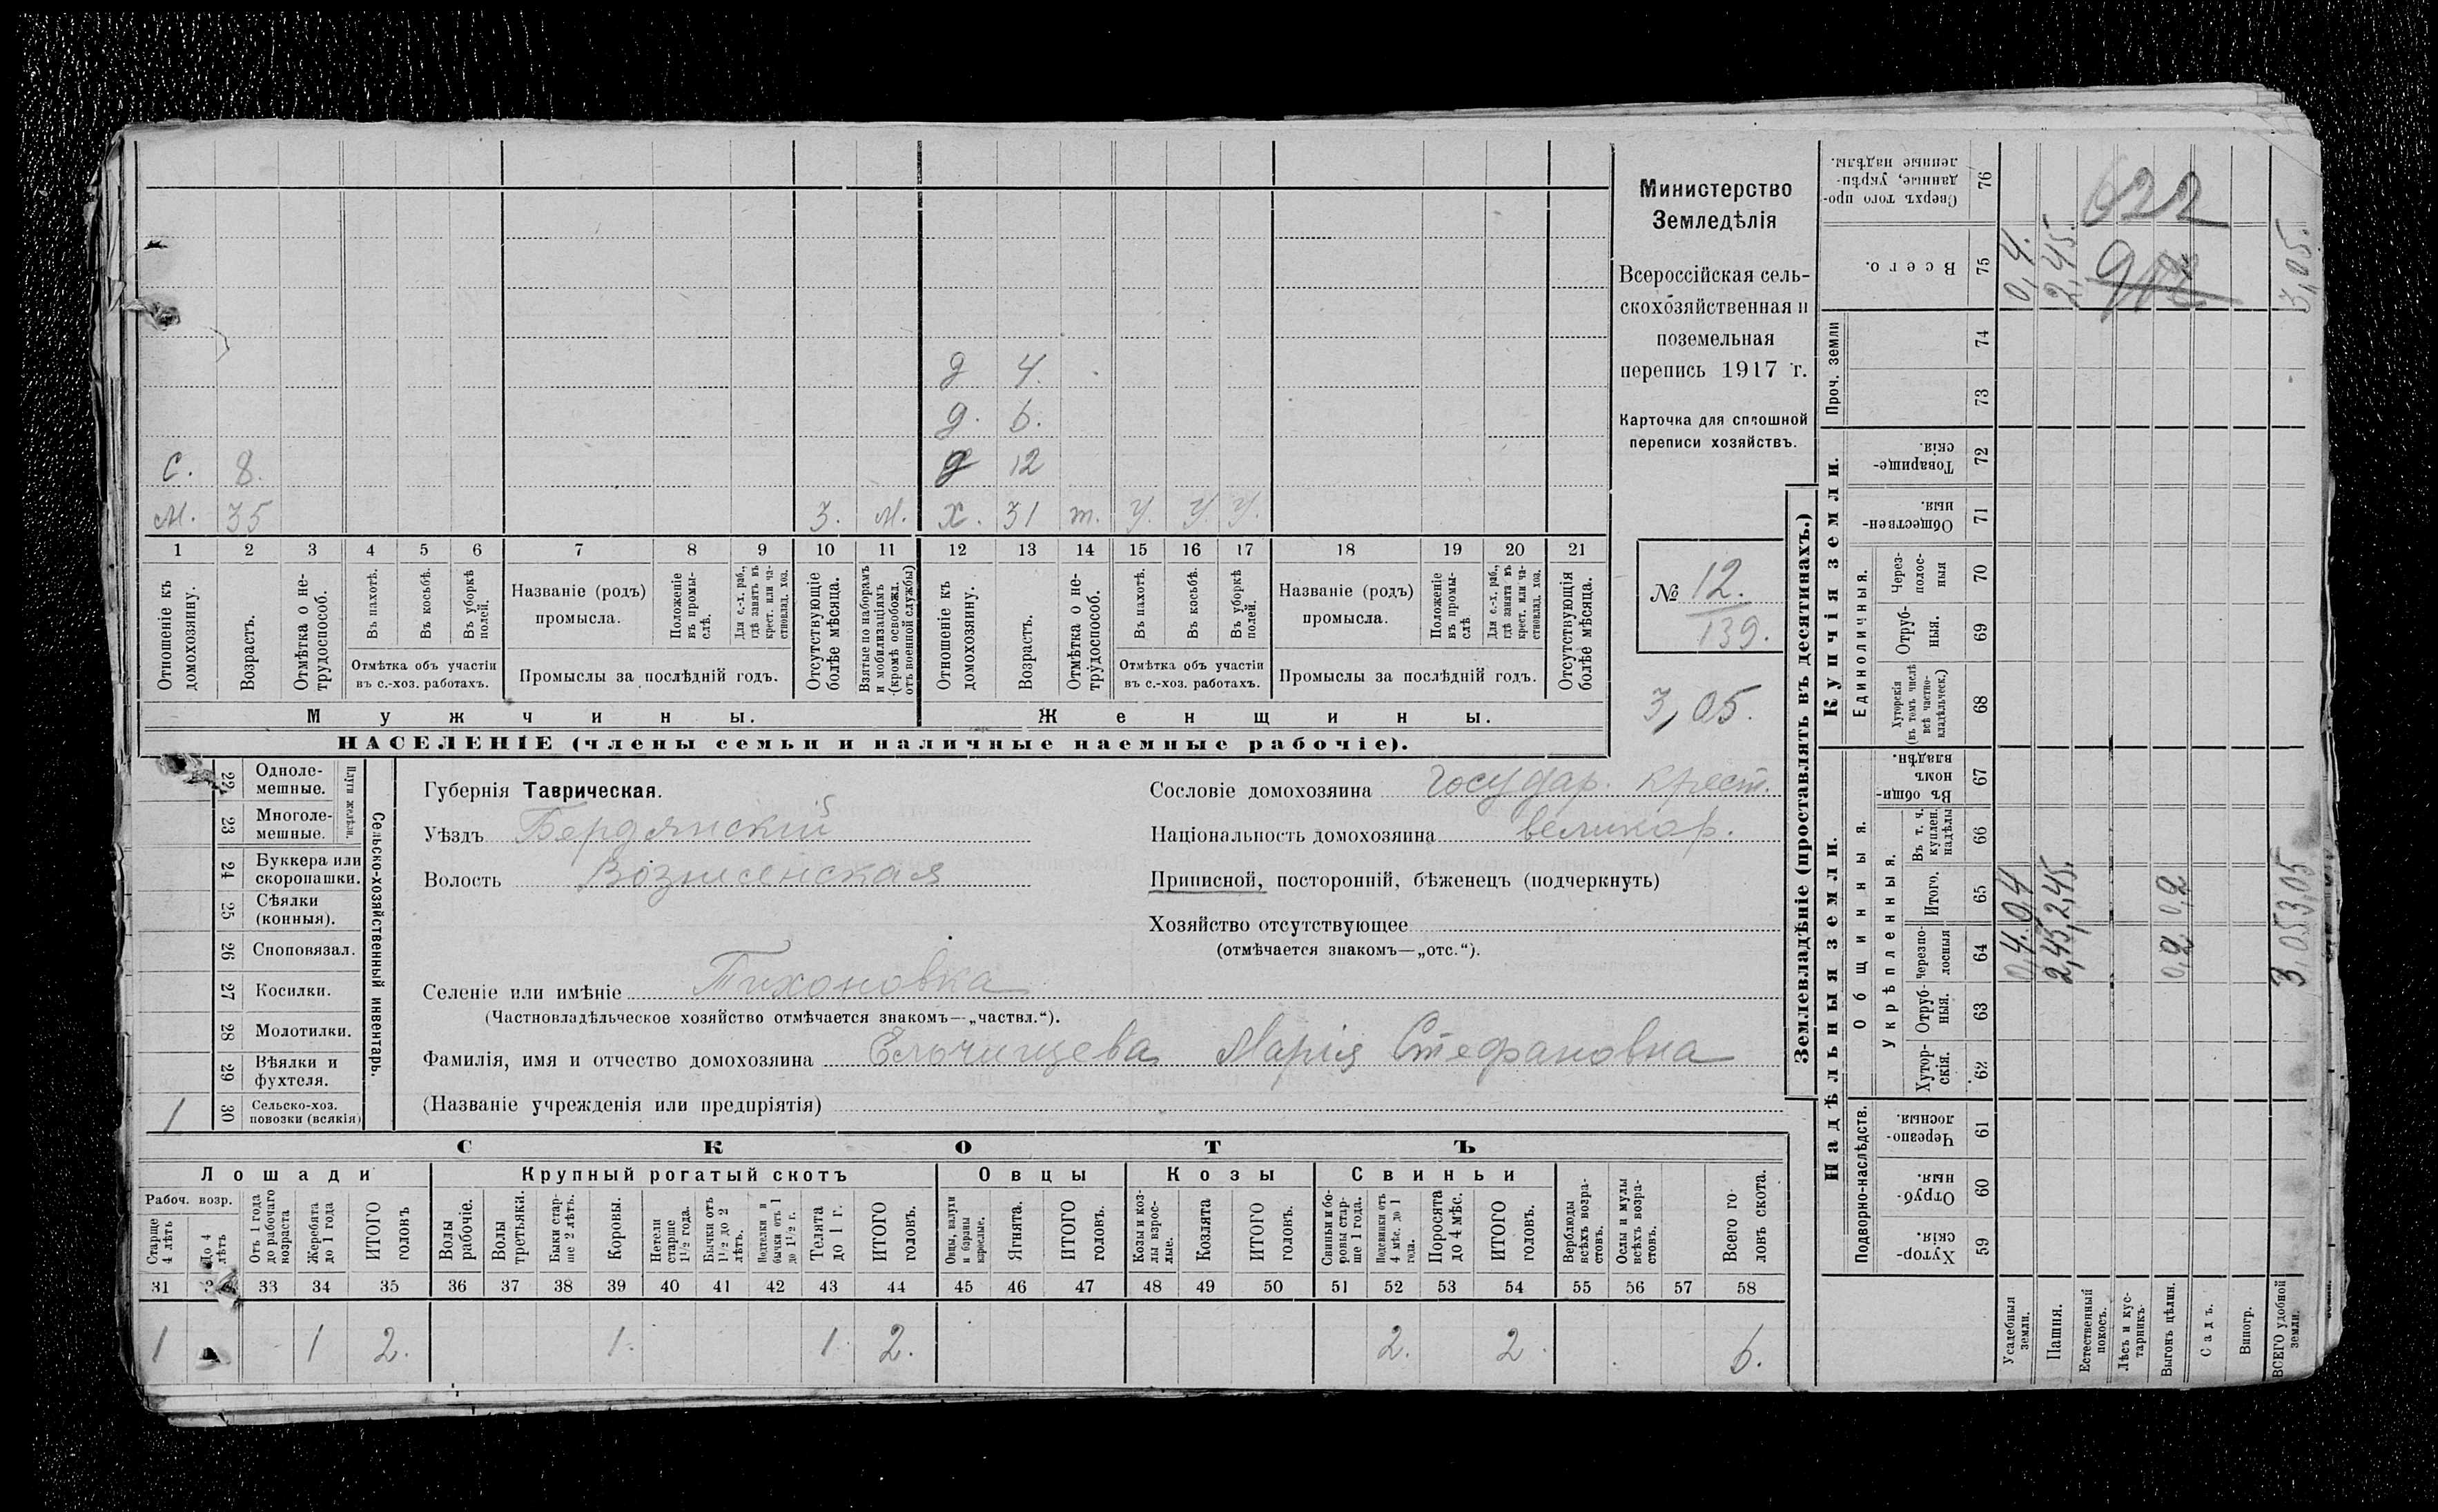 Министерство
Земледѣлія
Всероссійская сель-
скохозяйственная и
поземельная
перепись 1917 г.
Карточка для сплошной
переписи хозяйствъ.
№ 12.
139.
3,05.
д 4.
д. 6.
С. 8. д 12
М. 35 З. М. Х. 31 т. У. У. У.
1 2 3 4 5 6 7 8 9 10 11 12 13 14 15 16 17 18 19 20 21
Отношеніе къ домохозяину.
Возрастъ.
Отмѣтка о не-трудоспособ.
Въ пахотѣ.
Въ косьбѣ.
Въ уборкѣ полей.
Отмѣтка объ участіи
въ с.-хоз. работахъ.
Названіе (родъ)
промысла.
Положеніе въ промы-слѣ.
Для с.-х. раб., гдѣ занятъ въ крест. или ча-стновлад. хоз.
Промыслы за послѣдній годъ.
Отсутствующіе болѣе мѣсяца.
Взятые по наборамъ и мобилизаціямъ (кромѣ освобожд. отъ военной службы)
Отношеніе къ домохозяину.
Возрастъ.
Отмѣтка о не-трудоспособ.
Въ пахотѣ.
Въ косьбѣ.
Въ уборкѣ полей.
Отмѣтка объ участіи
въ с.-хоз. работахъ.
Названіе (родъ)
промысла.
Положеніе въ промы-слѣ
Для с.-х. раб., гдѣ занята въ крест. или ча-стновлад. хоз.
Промыслы за послѣдній годъ.
Отсутствующія болѣе мѣсяца.
Мужчины. Женщины.
НАСЕЛЕНІЕ (члены семьи и наличные наемные рабочіе).
Сельско-хозяйственный инвентарь.
Плуги желѣзн.
22 Одноле-мешные.
23 Многоле-мешные.
24 Буккера или скоропашки.
25 Сѣялки (конныя).
26 Сноповязал.
27 Косилки.
28 Молотилки.
29 Вѣялки и фухтеля.
1 30 Сельско-хоз. повозки (всякія)
Губернія Таврическая.
Уѣздъ Бердянскій
Волость Вознесенская
Сословіе домохозяина государ. крест.
Національность домохозяина великор.
Приписной, посторонній, бѣженецъ (подчеркнуть)
Хозяйство отсутствующее
(отмѣчается знакомъ—„отс.“).
Селеніе или имѣніе Тихоновка
(Частновладѣльческое хозяйство отмѣчается знакомъ—„частвл.“).
Фамилія, имя и отчество домохозяина Ельчищева Марія Стефановна
(Названіе учрежденія или предпріятія)
СКОТЪ
Лошади Крупный рогатый скотъ Овцы Козы Свиньи
Рабоч. возр.
Старше 4 лѣтъ
До 4 лѣтъ
Отъ 1 года до рабочаго возраста
Жеребята до 1 года
ИТОГО головъ
Волы рабочіе.
Волы третьяки.
Быки стар-ше 2 лѣтъ.
Коровы.
Нетели старше 1½ года.
Бычки отъ 1½ до 2 лѣтъ.
Подтелки и бычки отъ 1 до 1½ г.
Телята до 1 г.
ИТОГО головъ.
Овцы, валухи и бараны взрослые.
Ягнята.
ИТОГО головъ.
Козы и коз-лы взрос-лые.
Козлята
ИТОГО головъ.
Свиньи и бо-ровы стар-ше 1 года.
Подсвинки отъ 4 мѣс. до 1 года.
Поросята до 4 мѣс.
ИТОГО головъ.
Верблюды всѣхъ возра-стовъ.
Ослы и мулы всѣхъ возра-стовъ.
Всего го-ловъ скота.
31 33 34 35 36 37 38 39 40 41 42 43 44 45 46 47 48 49 50 51 52 53 54 55 56 57 58
1 1 2. 1. 1 2. 2. 2. 6.
Землевладѣніе (проставлять въ десятинахъ.)
Купчія земли.
Проч. земли
Единоличныя.
Надѣльныя земли.
Общинныя.
Укрѣпленныя.
Подворно-наслѣдств.
76 Сверхъ того про-данные, укрѣп-ленные надѣлы.
75 Всего.
74
73
72 Товарище-скія.
71 Обществен-ныя.
70 Через-полос-ныя
69 Отруб-ныя.
68 Хуторскія (въ томъ числѣ всѣ частно-владѣльческ.)
67 Въ общин-номъ владѣн.
66 Въ т. ч. куплен. надѣлы
65 Итого.
64 Черезпо-лосныя
63 Отруб-ныя.
62 Хутор-скія.
61 Черезпо-лосныя.
60 Отруб-ныя.
59 Хутор-скія.
Усадебныя земли. 0,4. 0,4 0,4.
Пашня. 2,45, 2,45. 2,45.
Естественный покосъ.
Лѣсъ и кус-тарникъ.
Выгонъ цѣлин. 0,2 0,2
Садъ.
Виногр.
ВСЕГО удобной земли. 3,05 3,05 3,05.
622